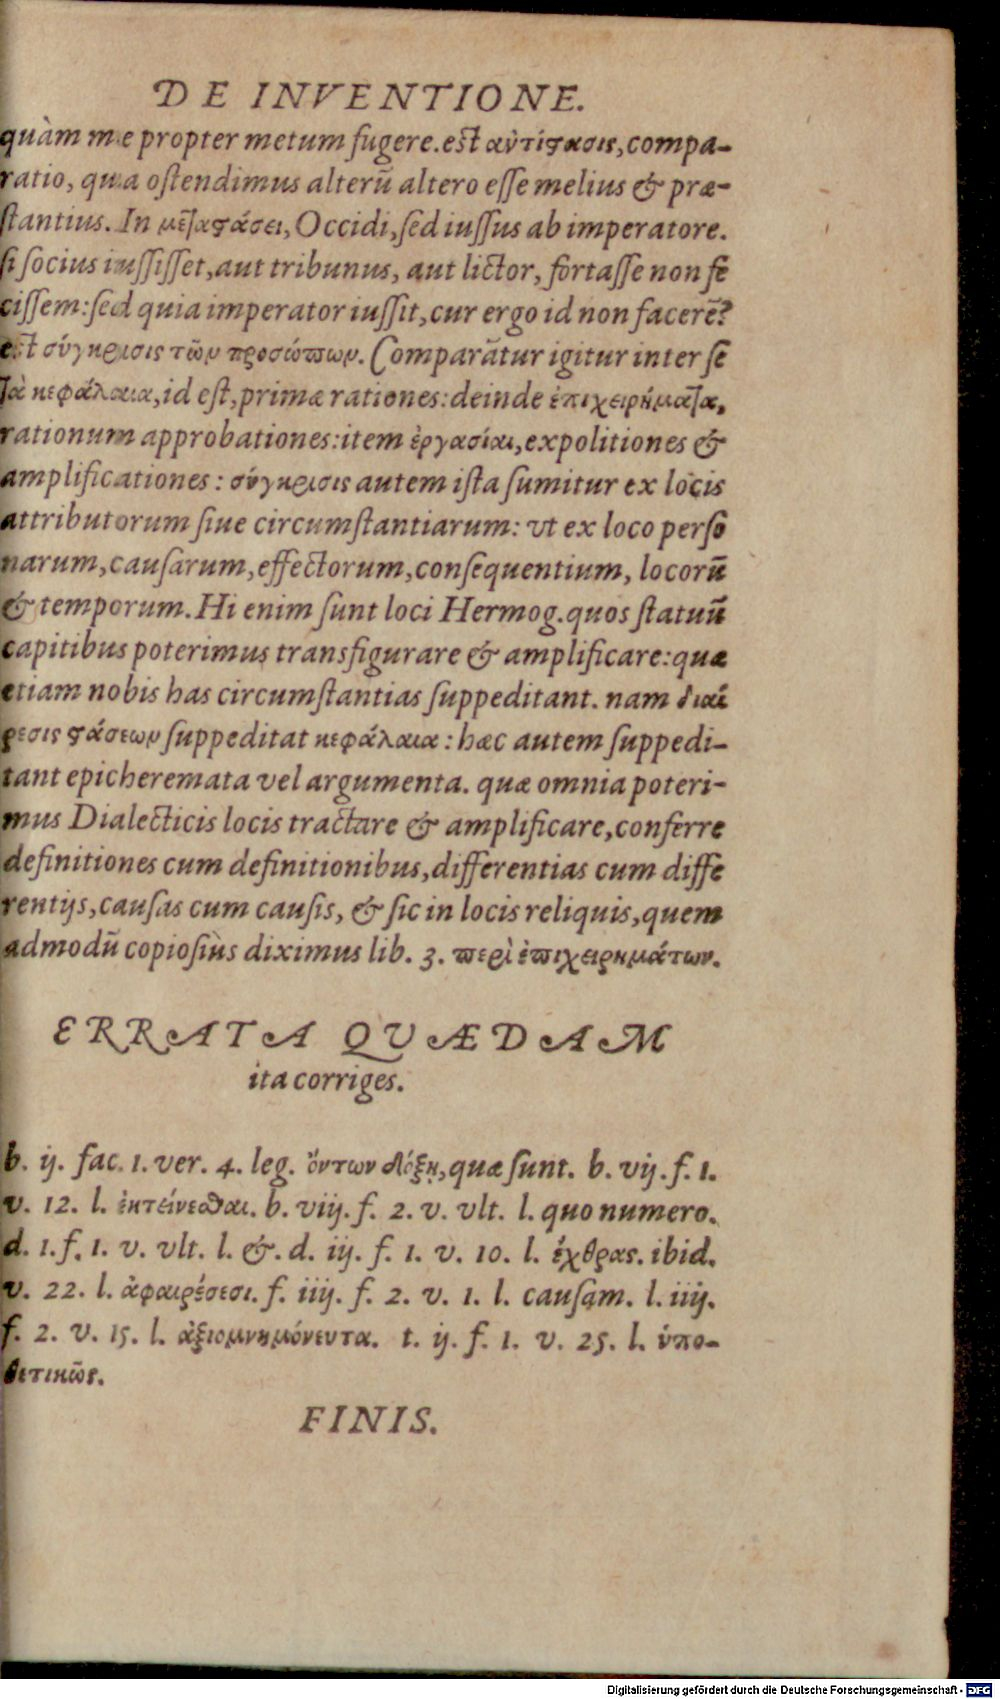 DE INVENTIONE.
quàm me propter metum fugere. est ἀντίστασις, compa-
ratio, qua ostendimus alterū altero esse melius & præ-
stantius. In μεταστάσει, Occidi, sed iussus ab imperatore.
si socius iussisset, aut tribunus, aut lictor, fortasse non fe
cissem: sed quia imperator iussit, cur ergo id non facerē?
est σύγκρισις τῶν προσώπων. Comparātur igitur inter se
τὰ κεφάλαια, id est, primæ rationes: deinde ἐπιχειρήματα,
rationum approbationes: item ἐργασίαι, expolitiones &
amplificationes: σύγκρισις autem ista sumitur ex locis
attributorum siue circumstantiarum: vt ex loco perso
narum, causarum, effectorum, consequentium, locorū
& temporum. Hi enim sunt loci Hermog. quos statuū
capitibus poterimus transfigurare & amplificare: quæ
etiam nobis has circumstantias suppeditant. nam διαί
ρεσις στάσεων suppeditat κεφάλαια: hæc autem suppedi-
tant epicheremata vel argumenta. quæ omnia poteri-
mus Dialecticis locis tractare & amplificare, conferre
definitiones cum definitionibus, differentias cum diffe
rentijs, causas cum causis, & sic in locis reliquis, quem
admodū copiosiùs diximus lib. 3. περὶ ἐπιχειρημάτων.
ERRATA QVÆDAM
ita corriges.
b. ij. fac. 1. ver. 4. leg. ὄντων δόξῃ, quæ sunt. b. vij. f. 1.
v. 12. l. ἐκτείνεσθαι. b. viij. f. 2. v. vlt. l. quo numero.
d. 1. f. 1. v. vlt. l. &. d. iij. f. 1. v. 10. l. ἔχθρας. ibid.
v. 22. l. ἀφαιρέσεσι. f. iiij. f. 2. v. 1. l. causam. l. iiij.
f. 2. v. 15. l. ἀξιομνημόνευτα. t. ij. f. 1. v. 25. l. ὑπο-
θετικῶς.
FINIS.
Digitalisierung gefördert durch die Deutsche Forschungsgemeinschaft - DFG